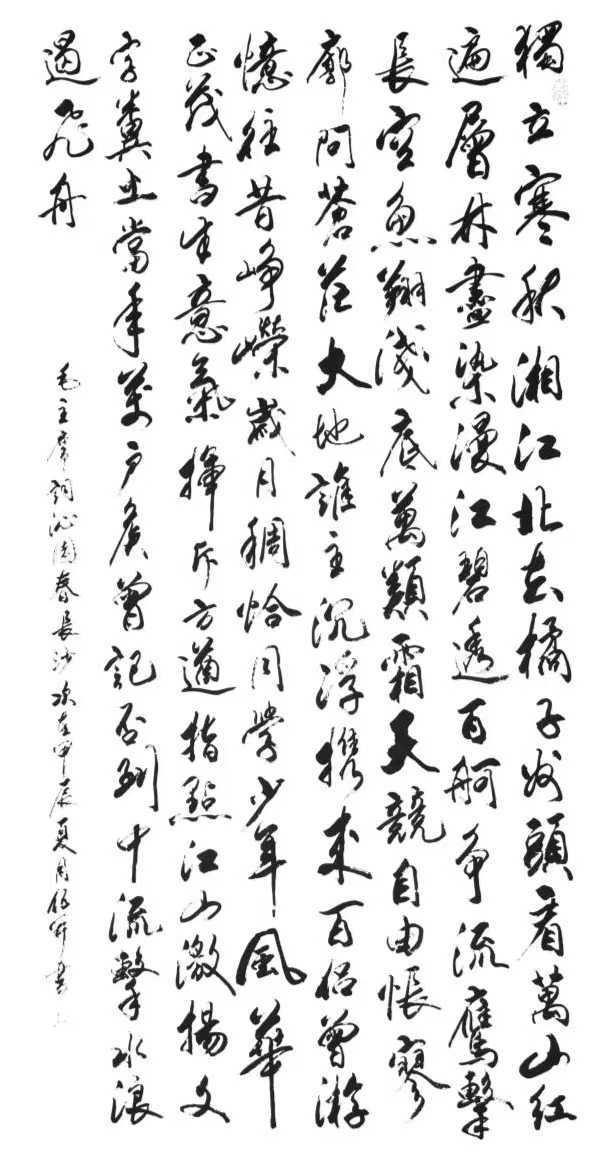 獨立寒秋湘江北去橘子洲頭看萬山紅
遍層林盡染漫江碧透百舸争流鷹擊
長空魚翔淺底萬類霜天競自由悵寥
廓問蒼茫大地誰主沉浮携來百侣曾游
憶往昔崢嶸歲月稠恰同學少年風華
正茂書生意氣揮斥方遒指點江山激揚文
字糞土當年萬户侯曾記否到中流擊水浪
遏飛舟
毛主席詞沁園春長沙次在甲辰夏月書